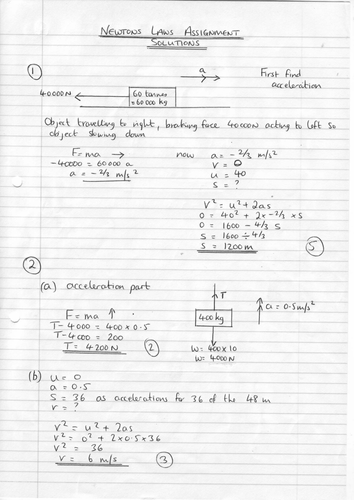 NEWTONS LAWS ASSIGNMENT
SOLUTIONS
1
a
First find
acceleration
40000N
60 tonnes
= 60000 kg
Object travelling to right, braking force 40000N acting to left so
object slowing down
F = ma →
-40000 = 60000 a
a = -2/3 m/s²
now a = -2/3 m/s²
v = 0
u = 40
s = ?
v² = u² + 2as
0 = 40² + 2x -2/3 x s
0 = 1600 - 4/3 s
s = 1600 ÷ 4/3
s = 1200m
5
2
(a) acceleration part
F = ma ↑
T - 4000 = 400 x 0.5
T - 4000 = 200
T = 4200N
2
T
400 kg
a = 0.5 m/s²
W = 400x10
W = 4000N
(b) u = 0
a = 0.5
s = 36 as accelerations for 36 of the 48 m
v = ?
v² = u² + 2as
v² = 0² + 2 x 0.5 x 36
v² = 36
v = 6 m/s
3